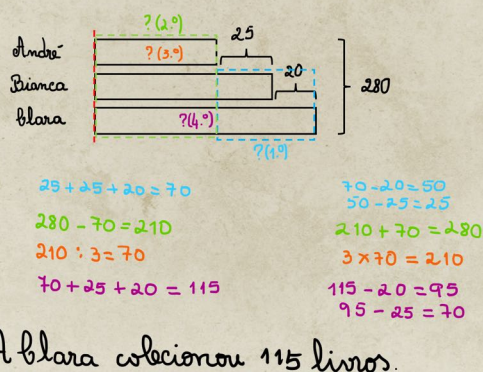 ?(2.º)
25
André
?(3.º)
20
Bianca
280
Clara
?(4.º)
?(1.º)
25 + 25 + 20 = 70
280 - 70 = 210
210 : 3 = 70
70 + 25 + 20 = 115
70 - 20 = 50
50 - 25 = 25
210 + 70 = 280
3 × 70 = 210
115 - 20 = 95
95 - 25 = 70
A Clara colecionou 115 livros.